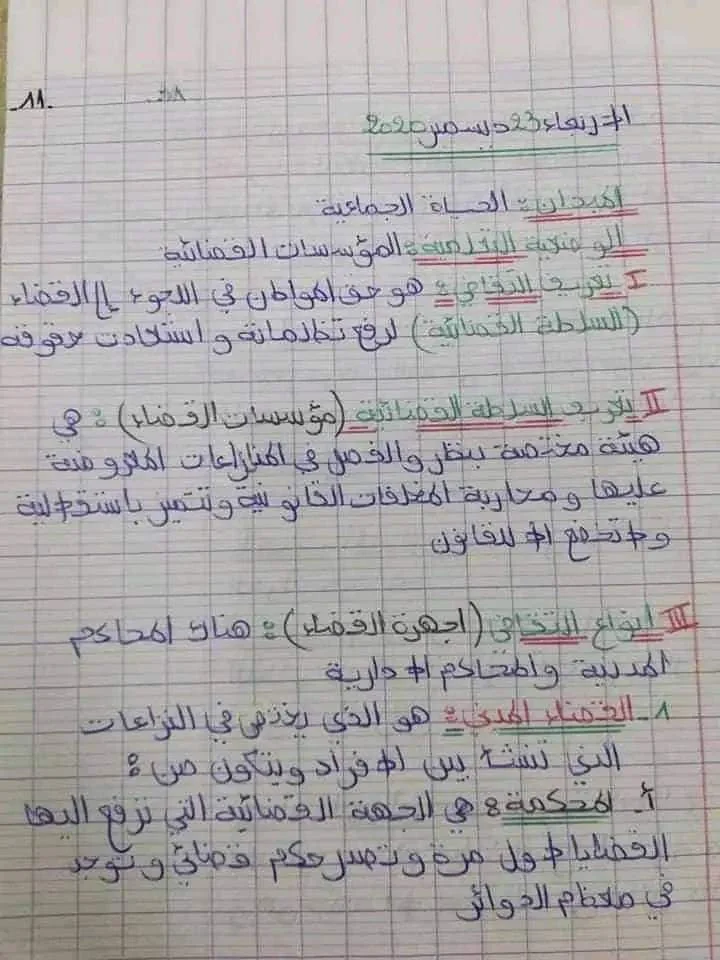 -11-
الاربعاء 23 ديسمبر 2020
الميدان: الحياة الجماعية
الوضعية التعلمية: المؤسسات القضائية
I تعريف التقاضي: هو حق المواطن في اللجوء إلى القضاء
(السلطة القضائية) لرفع تظلماتة و استعادت حقوقه
II تعريف السلطة القضائية (مؤسسات القضاء): هي
هيئة مختصة بنظر والفصل في المنازاعات المعروضة
عليها و محاربة المخلفات القانونية وتتميز باستقلالية
ولا تخضع الا للقانون
III انواع التقاضي (اجهزة القضاء): هناك المحاكم
المدنية والمحاكم الادارية
1- القضاء المدني: هو الذي يختص في النزاعات
التي تنشأ بين الافراد ويتكون من:
أ- المحكمة: هي الجهة القضائية التي ترفع اليها
القضايا لاول مرة وتصدر حكم قضائي و توجد
في معظم الدوائر